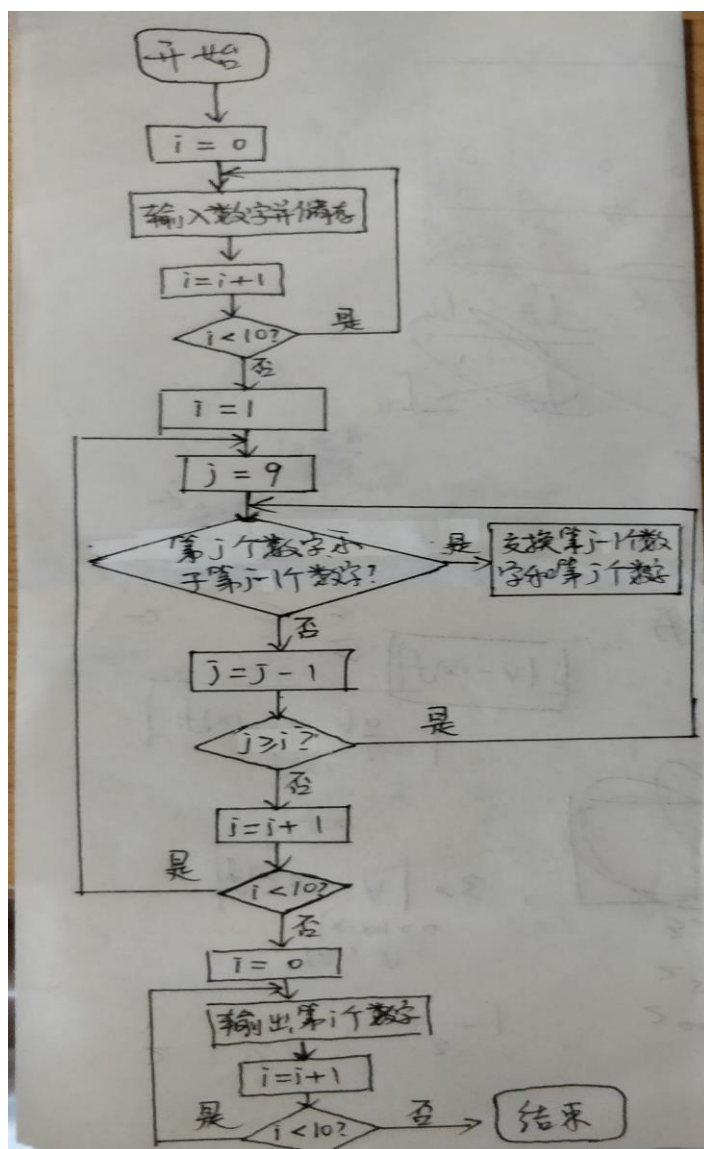 开始
i = 0
输入数字并储存
i = i + 1
i < 10?
是
否
i = 1
j = 9
第j个数字小
于第j-1个数字?
是
交换第j-1个数
字和第j个数字
否
j = j - 1
j ≥ i?
是
否
i = i + 1
是
i < 10?
否
i = 0
输出第i个数字
i = i + 1
是
i < 10?
否
结束